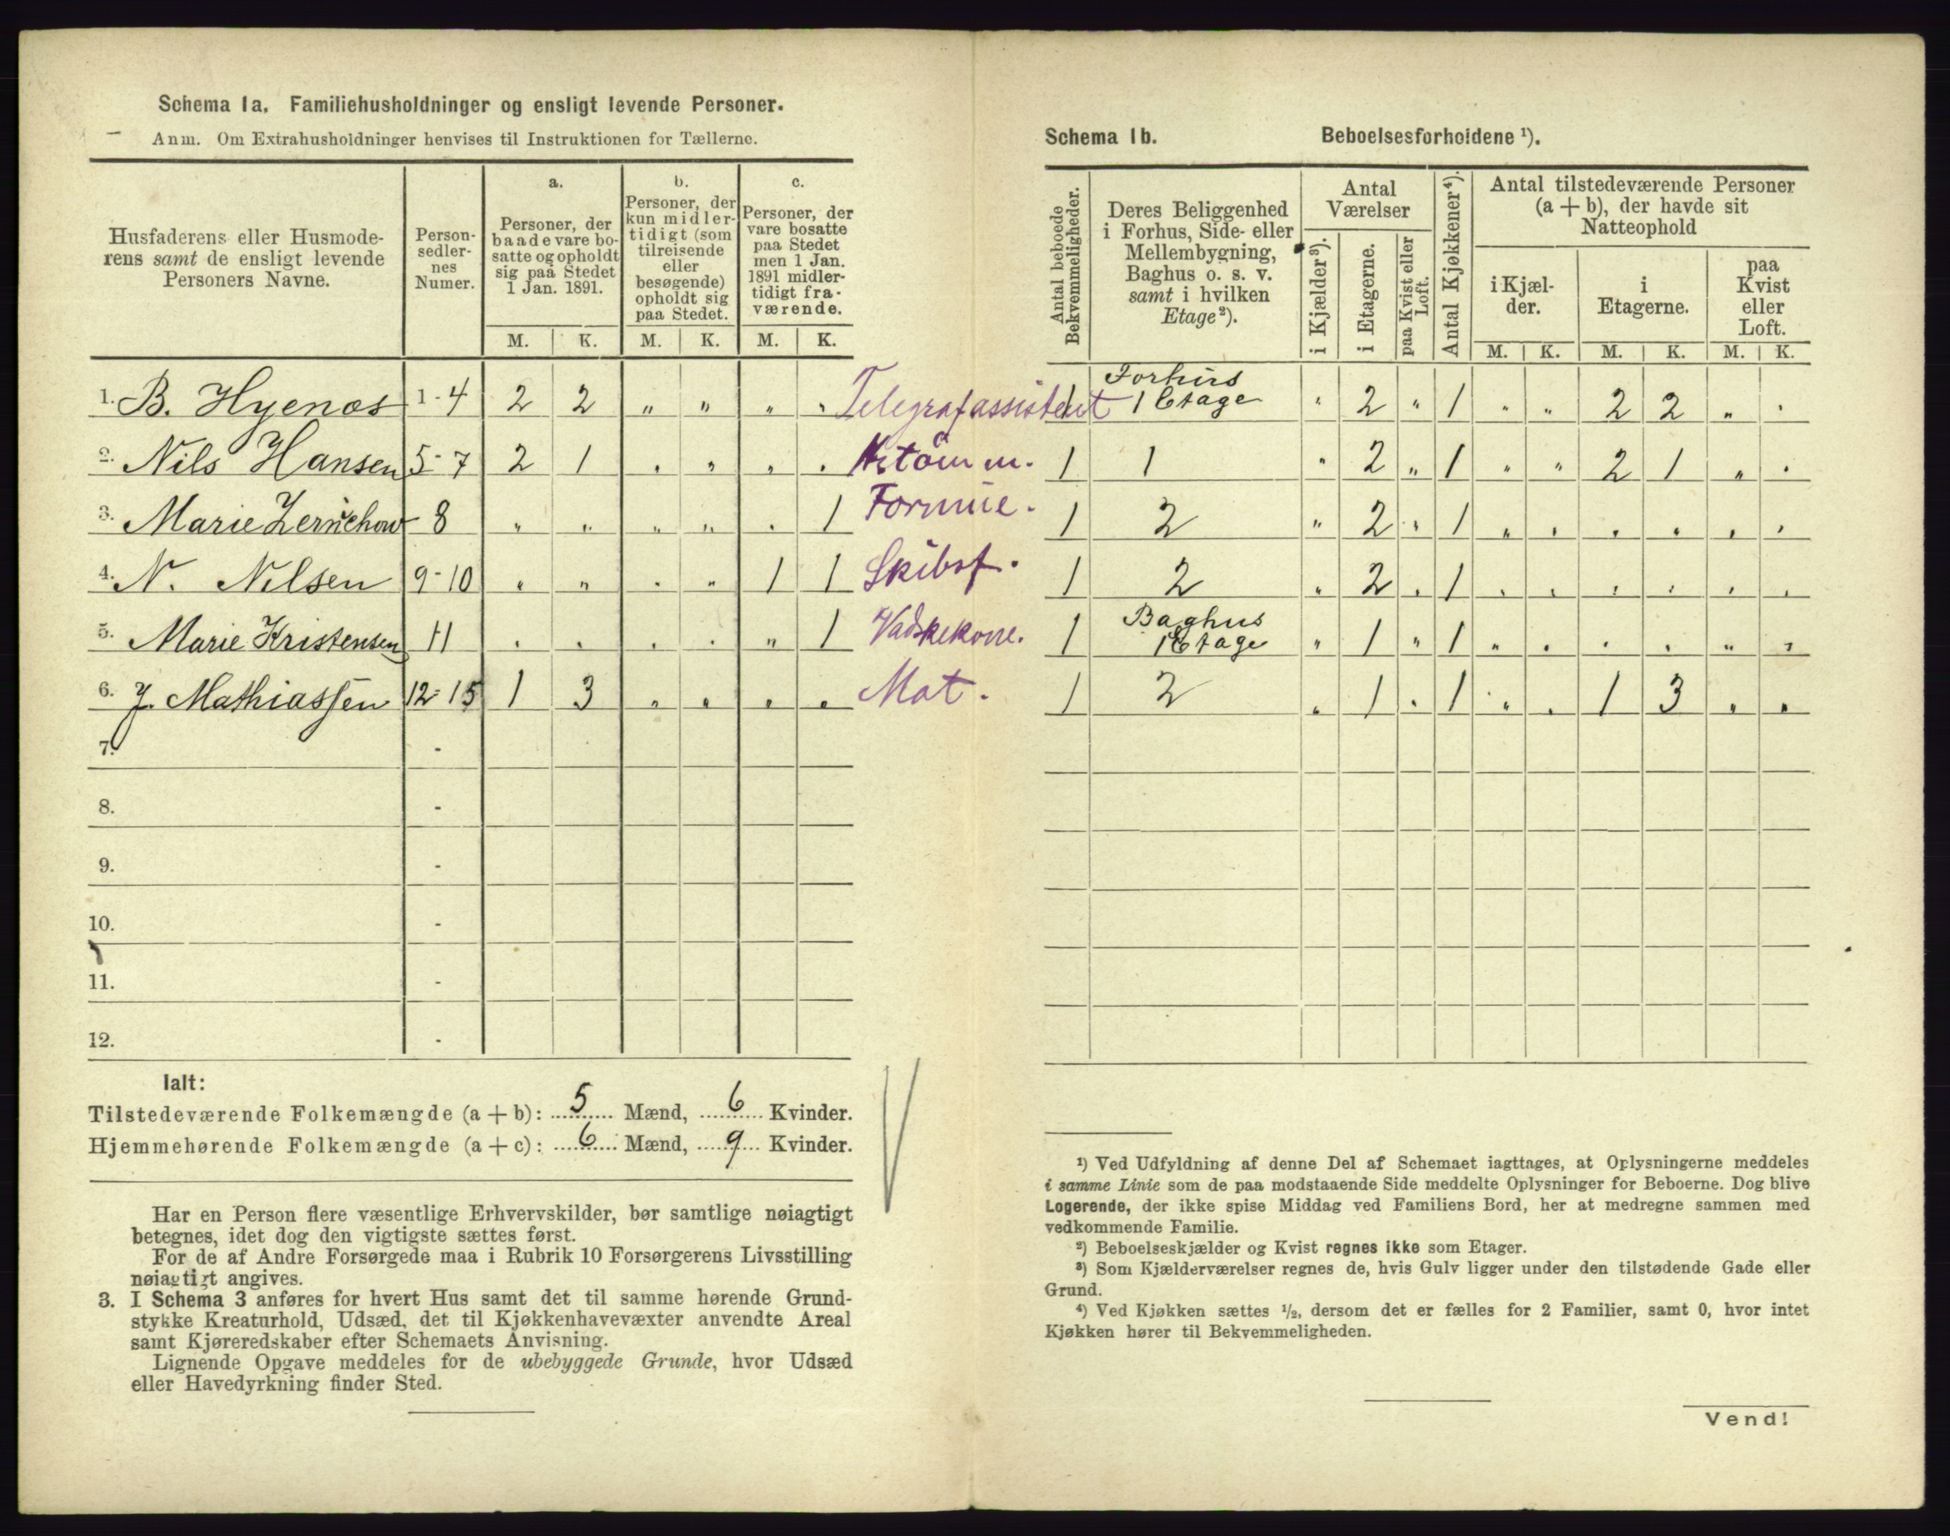 Schema 1a. Familiehusholdninger og ensligt levende Personer.
Anm. Om Extrahusholdninger henvises til Instruktionen for Tællerne.
Husfaderens eller Husmode-
rens samt de ensligt levende
Personers Navne.
Person-
sedler-
nes
Numer.
a.
Personer, der
baade vare bo-
satte og opholdt
sig paa Stedet
1 Jan. 1891.
b.
Personer, der
kun midler-
tidigt (som
tilreisende
eller
besøgende)
opholdt sig
paa Stedet.
c.
Personer, der
vare bosatte
paa Stedet
men 1 Jan.
1891 midler-
tidigt fra-
værende.
M. K. M. K. M. K.
1. B. Hyenæs 1-4 2 2 „ „ „ . Telegrafassistent
2. Nils Hansen 5-7 2 1 . „ „ .
3. Marie 8 „ „ „ „ . 1 Formue.
4. N. Nilsen 9-10 „ „ . „ 1 1 Skibsf.
5. Marie Kristensen 11 . . . . „ 1 Vadskekone.
6. J. Mathiassen 12-15 1 3 „ „ „ „ Mat.
7. -
8. -
9. -
10. -
11. -
12. -
Ialt:
Tilstedeværende Folkemængde (a + b): 5 Mænd, 6 Kvinder.
Hjemmehørende Folkemængde (a + c): 6 Mænd, 9 Kvinder.
Har en Person flere væsentlige Erhvervskilder, bør samtlige nøiagtigt
betegnes, idet dog den vigtigste sættes først.
For de af Andre Forsørgede maa i Rubrik 10 Forsørgerens Livsstilling
nøiagtigt angives.
3. I Schema 3 anføres for hvert Hus samt det til samme hørende Grund-
stykke Kreaturhold, Udsæd, det til Kjøkkenhavevæxter anvendte Areal
samt Kjøreredskaber efter Schemaets Anvisning.
Lignende Opgave meddeles for de ubebyggede Grunde, hvor Udsæd
eller Havedyrkning finder Sted.
Schema 1b. Beboelsesforholdene ¹).
Antal beboede
Bekvemmeligheder.
Deres Beliggenhed
i Forhus, Side- eller
Mellembygning,
Baghus o. s. v.
samt i hvilken
Etage²).
Antal
Værelser
i Kjælder³).
i Etagerne.
paa Kvist eller
Loft.
Antal Kjøkkener⁴).
Antal tilstedeværende Personer
(a + b), der havde sit
Natteophold
i Kjæl-
der.
i
Etagerne.
paa
Kvist
eller
Loft.
M. K. M. K. M. K.
Forhus
1 1 Etage „ 2 „ 1 „ „ 2 2 „ .
1 1 „ 2 „ 1 „ „ 2 1 „ .
1 2 „ 2 . 1 „ . . . . .
1 2 „ 2 . 1 . . . . . .
Baghus
1 1 Etage „ 1 „ 1 „ . . . „ ,
1 2 „ 1 . 1 „ . 1 3 . .
¹) Ved Udfyldning af denne Del af Schemaet iagttages, at Oplysningerne meddeles
i samme Linie som de paa modstaaende Side meddelte Oplysninger for Beboerne. Dog blive
Logerende, der ikke spise Middag ved Familiens Bord, her at medregne sammen med
vedkommende Familie.
²) Beboelseskjælder og Kvist regnes ikke som Etager.
³) Som Kjælderværelser regnes de, hvis Gulv ligger under den tilstødende Gade eller
Grund.
⁴) Ved Kjøkken sættes ½, dersom det er fælles for 2 Familier, samt 0, hvor intet
Kjøkken hører til Bekvemmeligheden.
Vend!